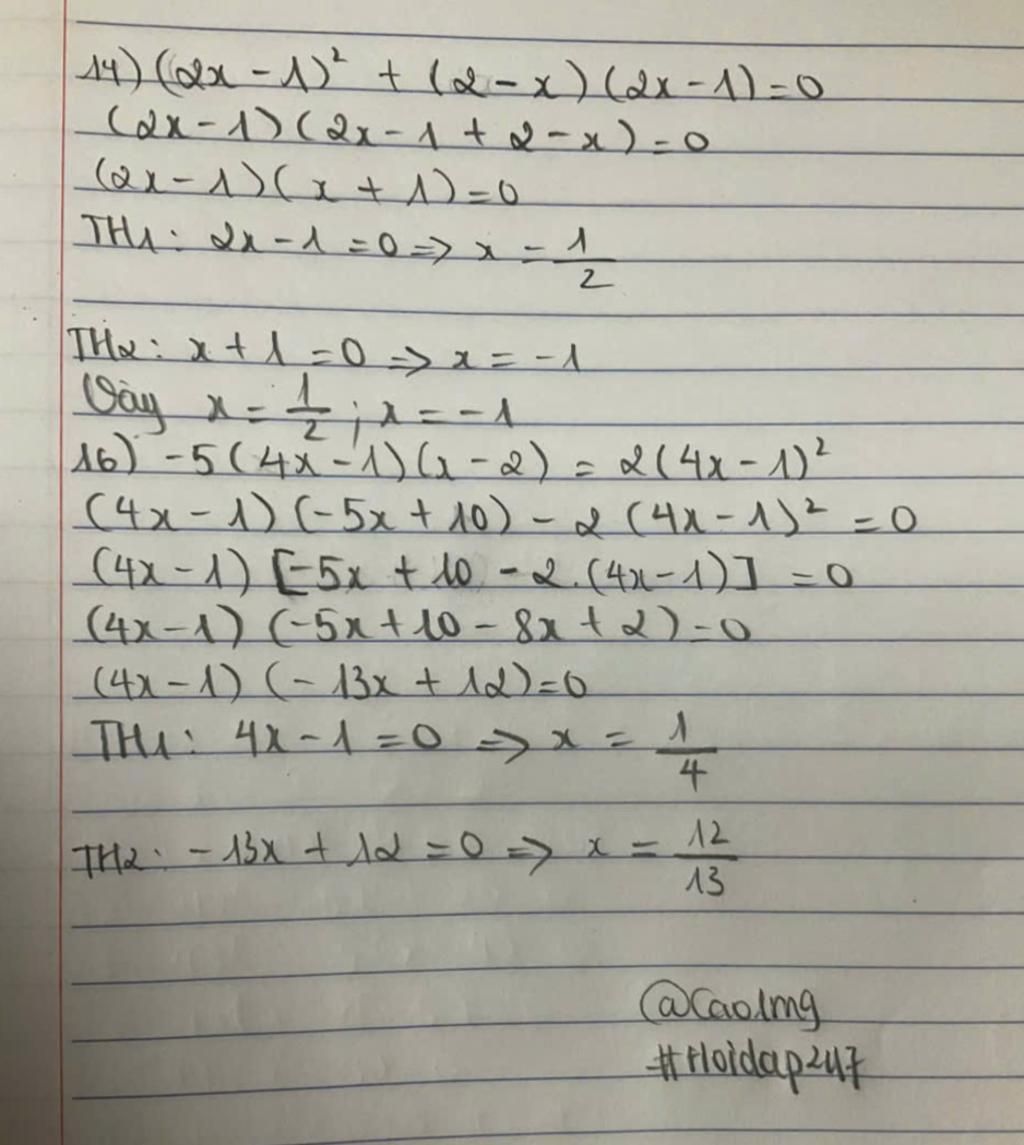 14) (2x - 1)² + (2 - x)(2x - 1) = 0
(2x - 1)(2x - 1 + 2 - x) = 0
(2x - 1)(x + 1) = 0
TH1: 2x - 1 = 0 => x = 1/2
TH2: x + 1 = 0 => x = -1
Vậy x = 1/2 ; x = -1
16) -5(4x - 1)(x - 2) = 2(4x - 1)²
(4x - 1)(-5x + 10) - 2(4x - 1)² = 0
(4x - 1) [-5x + 10 - 2.(4x - 1)] = 0
(4x - 1) (-5x + 10 - 8x + 2) = 0
(4x - 1) (-13x + 12) = 0
TH1: 4x - 1 = 0 => x = 1/4
TH2: -13x + 12 = 0 => x = 12/13
@Cao1mg
#Hoidap247